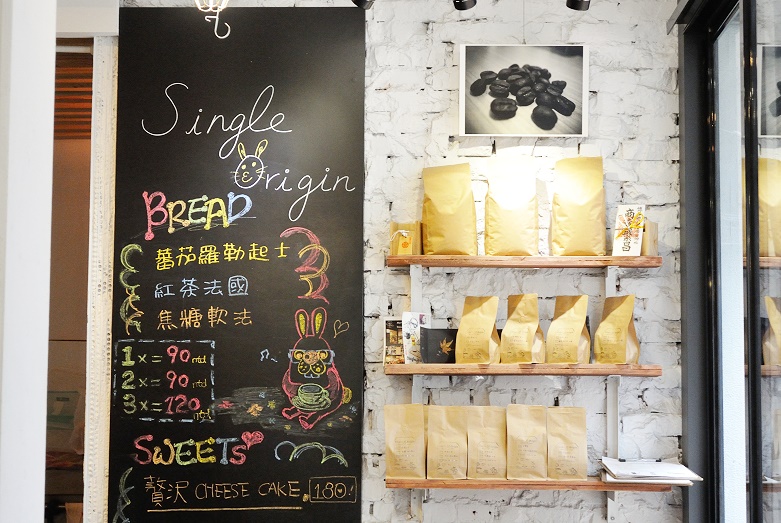 Single
Origin
BREAD
蕃茄羅勒起士
紅茶法國
焦糖軟法
1x=90ntd
2x=90ntd
3x=120ntd
SWEETS
贅沢 CHEESE CAKE. 180.